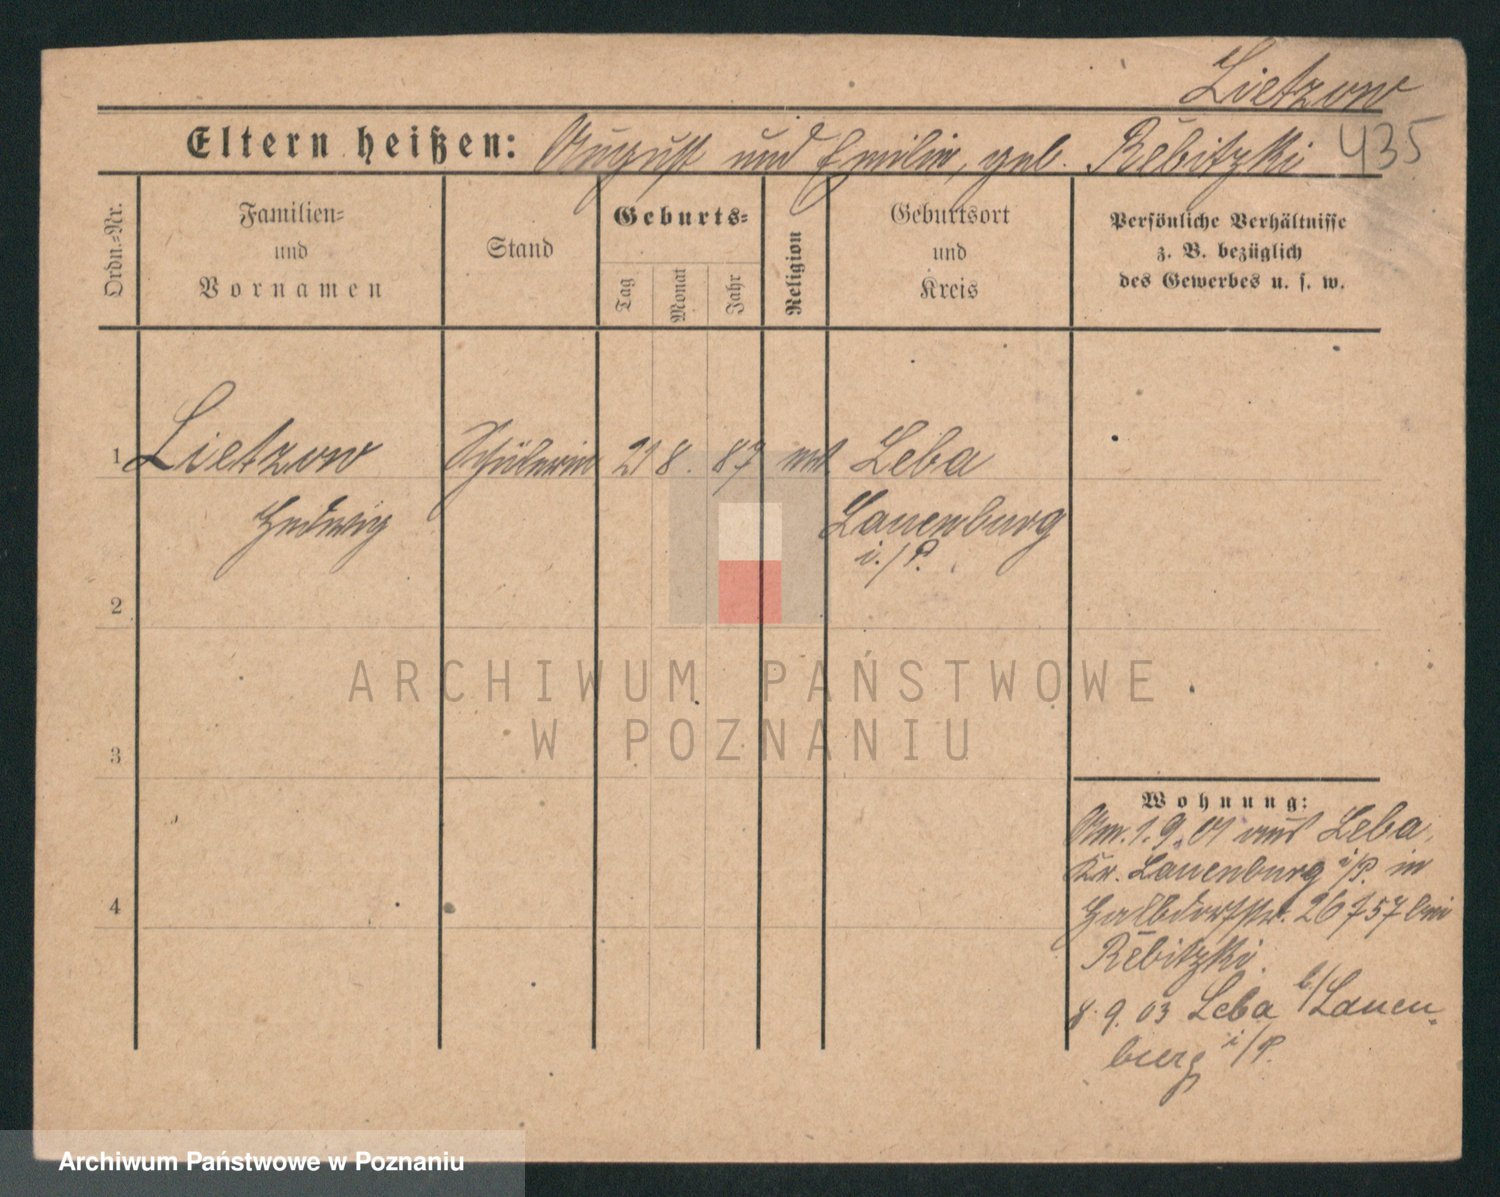 Lietzow
Eltern heißen: August und Emilie, geb. Rebitzki 435
Ordn.=Nr.
Familien=
und
Vornamen
Stand
Geburts=
Tag
Monat
Jahr
Religion
Geburtsort
und
Kreis
Persönliche Verhältnisse
z. B. bezüglich
des Gewerbes u. s. w.
1 Lietzow Schülerin 21 8. 87 Leba
Hedwig Lauenburg
i./P.
2
3
4
ARCHIWUM PAŃSTWOWE
W POZNANIU
Wohnung:
Am 1. 9. 01 aus Leba,
Kr. Lauenburg i/P. in
Halbdorfstr. 26 bei
Rebitzki.
8. 9. 03 Leba b/Lauen-
burg i/P.
Archiwum Państwowe w Poznaniu